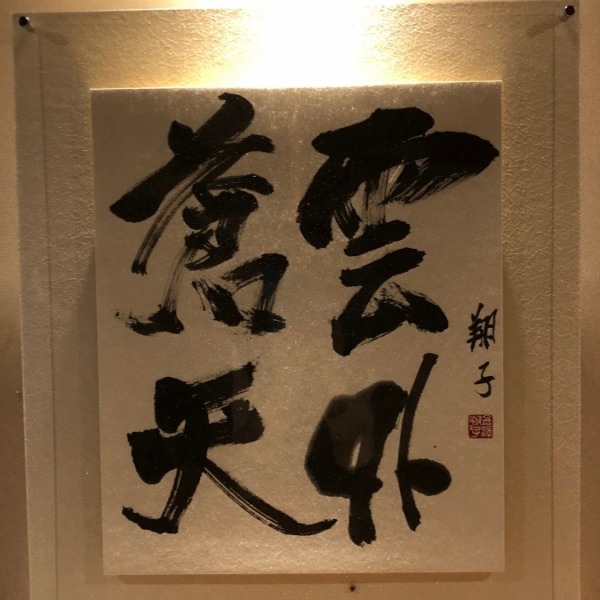 雲外
蒼天
翔子